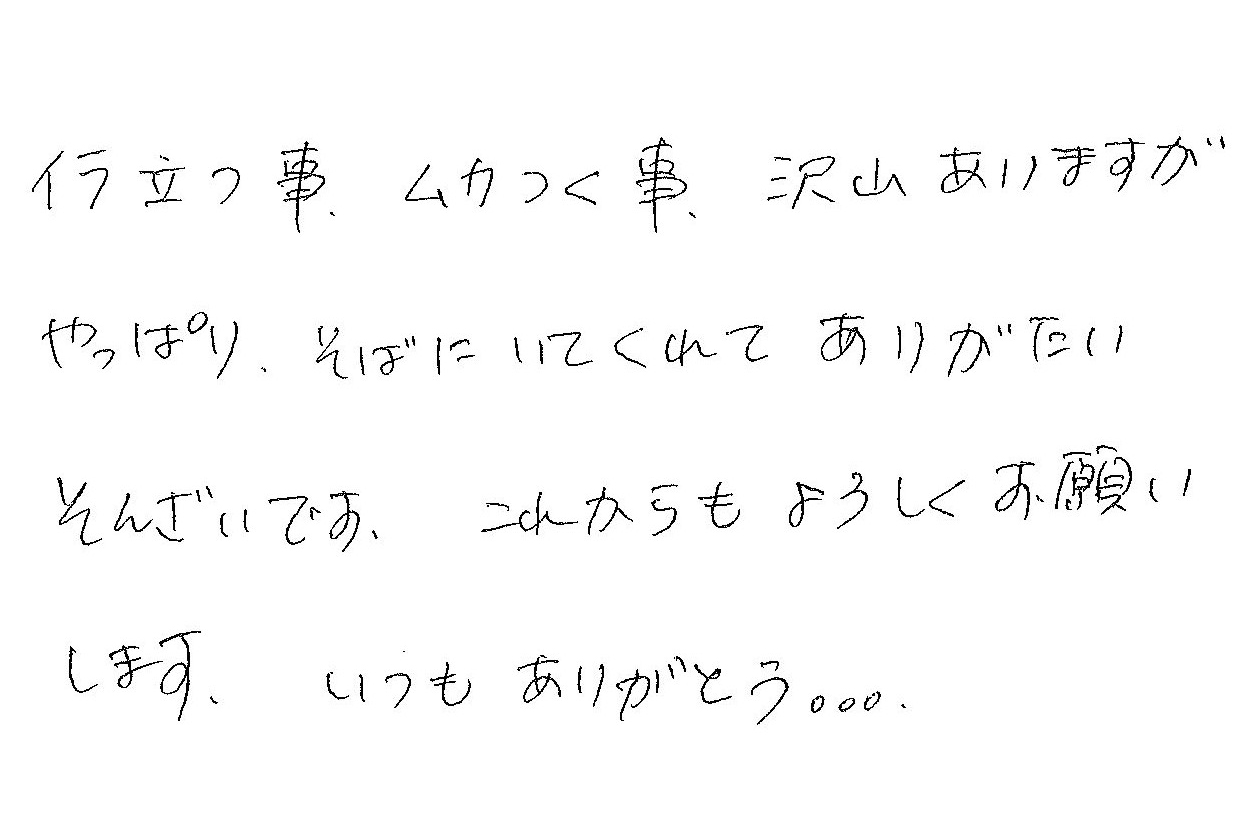 イラ立つ事、ムカつく事、沢山ありますが
やっぱり、そばにいてくれてありがたい
そんざいです、これからもよろしくお願い
します、いつもありがとう。。。.